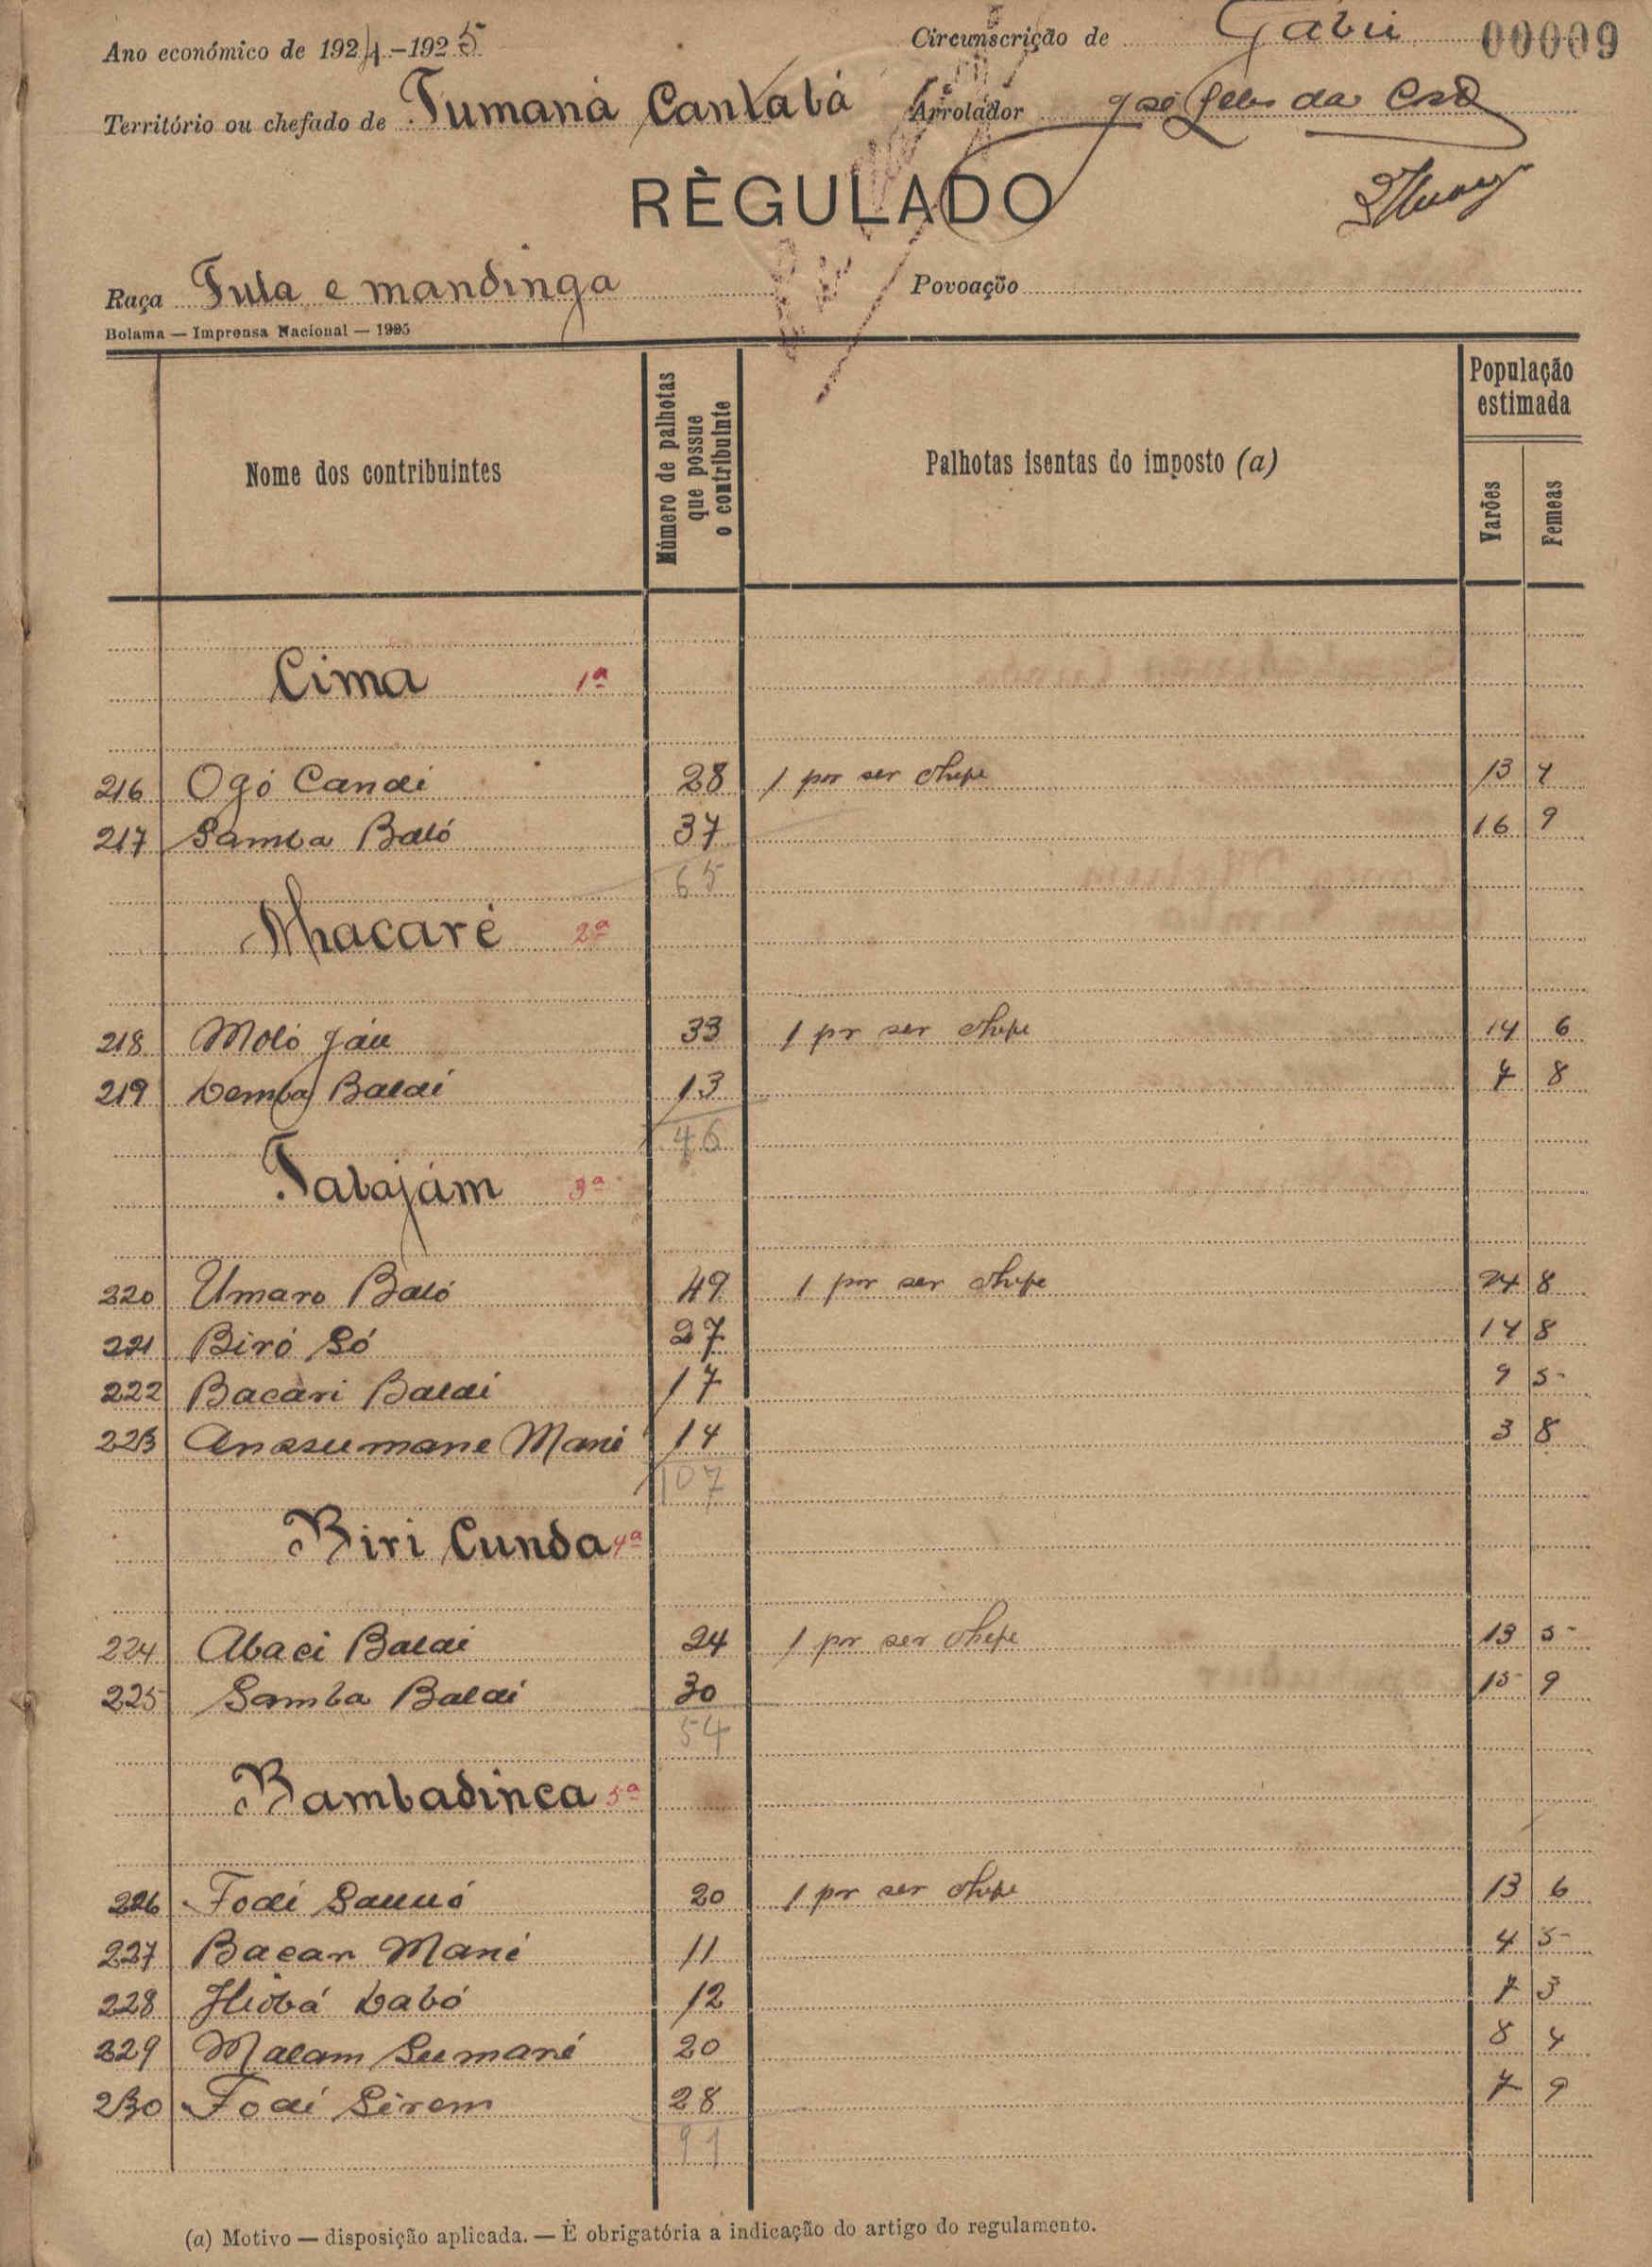 Ano económico de 1924-1925
Circunscrição de Gabú 00009
Território ou chefado de Tumaná Cantabá
Arrolador José da
RÈGULADO
Raça Fula e mandinga
Povoação
Bolama — Imprensa Nacional — 1925
Nome dos contribuintes
Número de palhotas que possue o contribuinte
Palhotas isentas do imposto (a)
População estimada
Varões
Femeas
Cima 1ª
216 Ogó Candé 28 1 por ser chefe 13 4
217 Samba Baló 37 16 9
65
Nhacaré 2ª
218 Moló Jáu 33 1 pr ser chefe 14 6
219 Demba Baldé 13 7 8
46
Tabajám 3ª
220 Umaro Baló 49 1 por ser chefe 24 8
221 Biró Só 27 14 8
222 Bacári Baldé 17 9 5
223 Anssumane Mané 14 3 8
107
Biri Cunda 4ª
224 Abaci Baldé 24 1 por ser chefe 13 5
225 Samba Baldé 30 15 9
54
Bambadinca 5ª
226 Fodé Sannó 20 1 por ser chefe 13 6
227 Bacar Mané 11 4 5
228 Dabó 12 7 3
229 Malam Sumané 20 8 4
230 Fodé Sirem 28 7 9
91
(a) Motivo — disposição aplicada. — É obrigatória a indicação do artigo do regulamento.